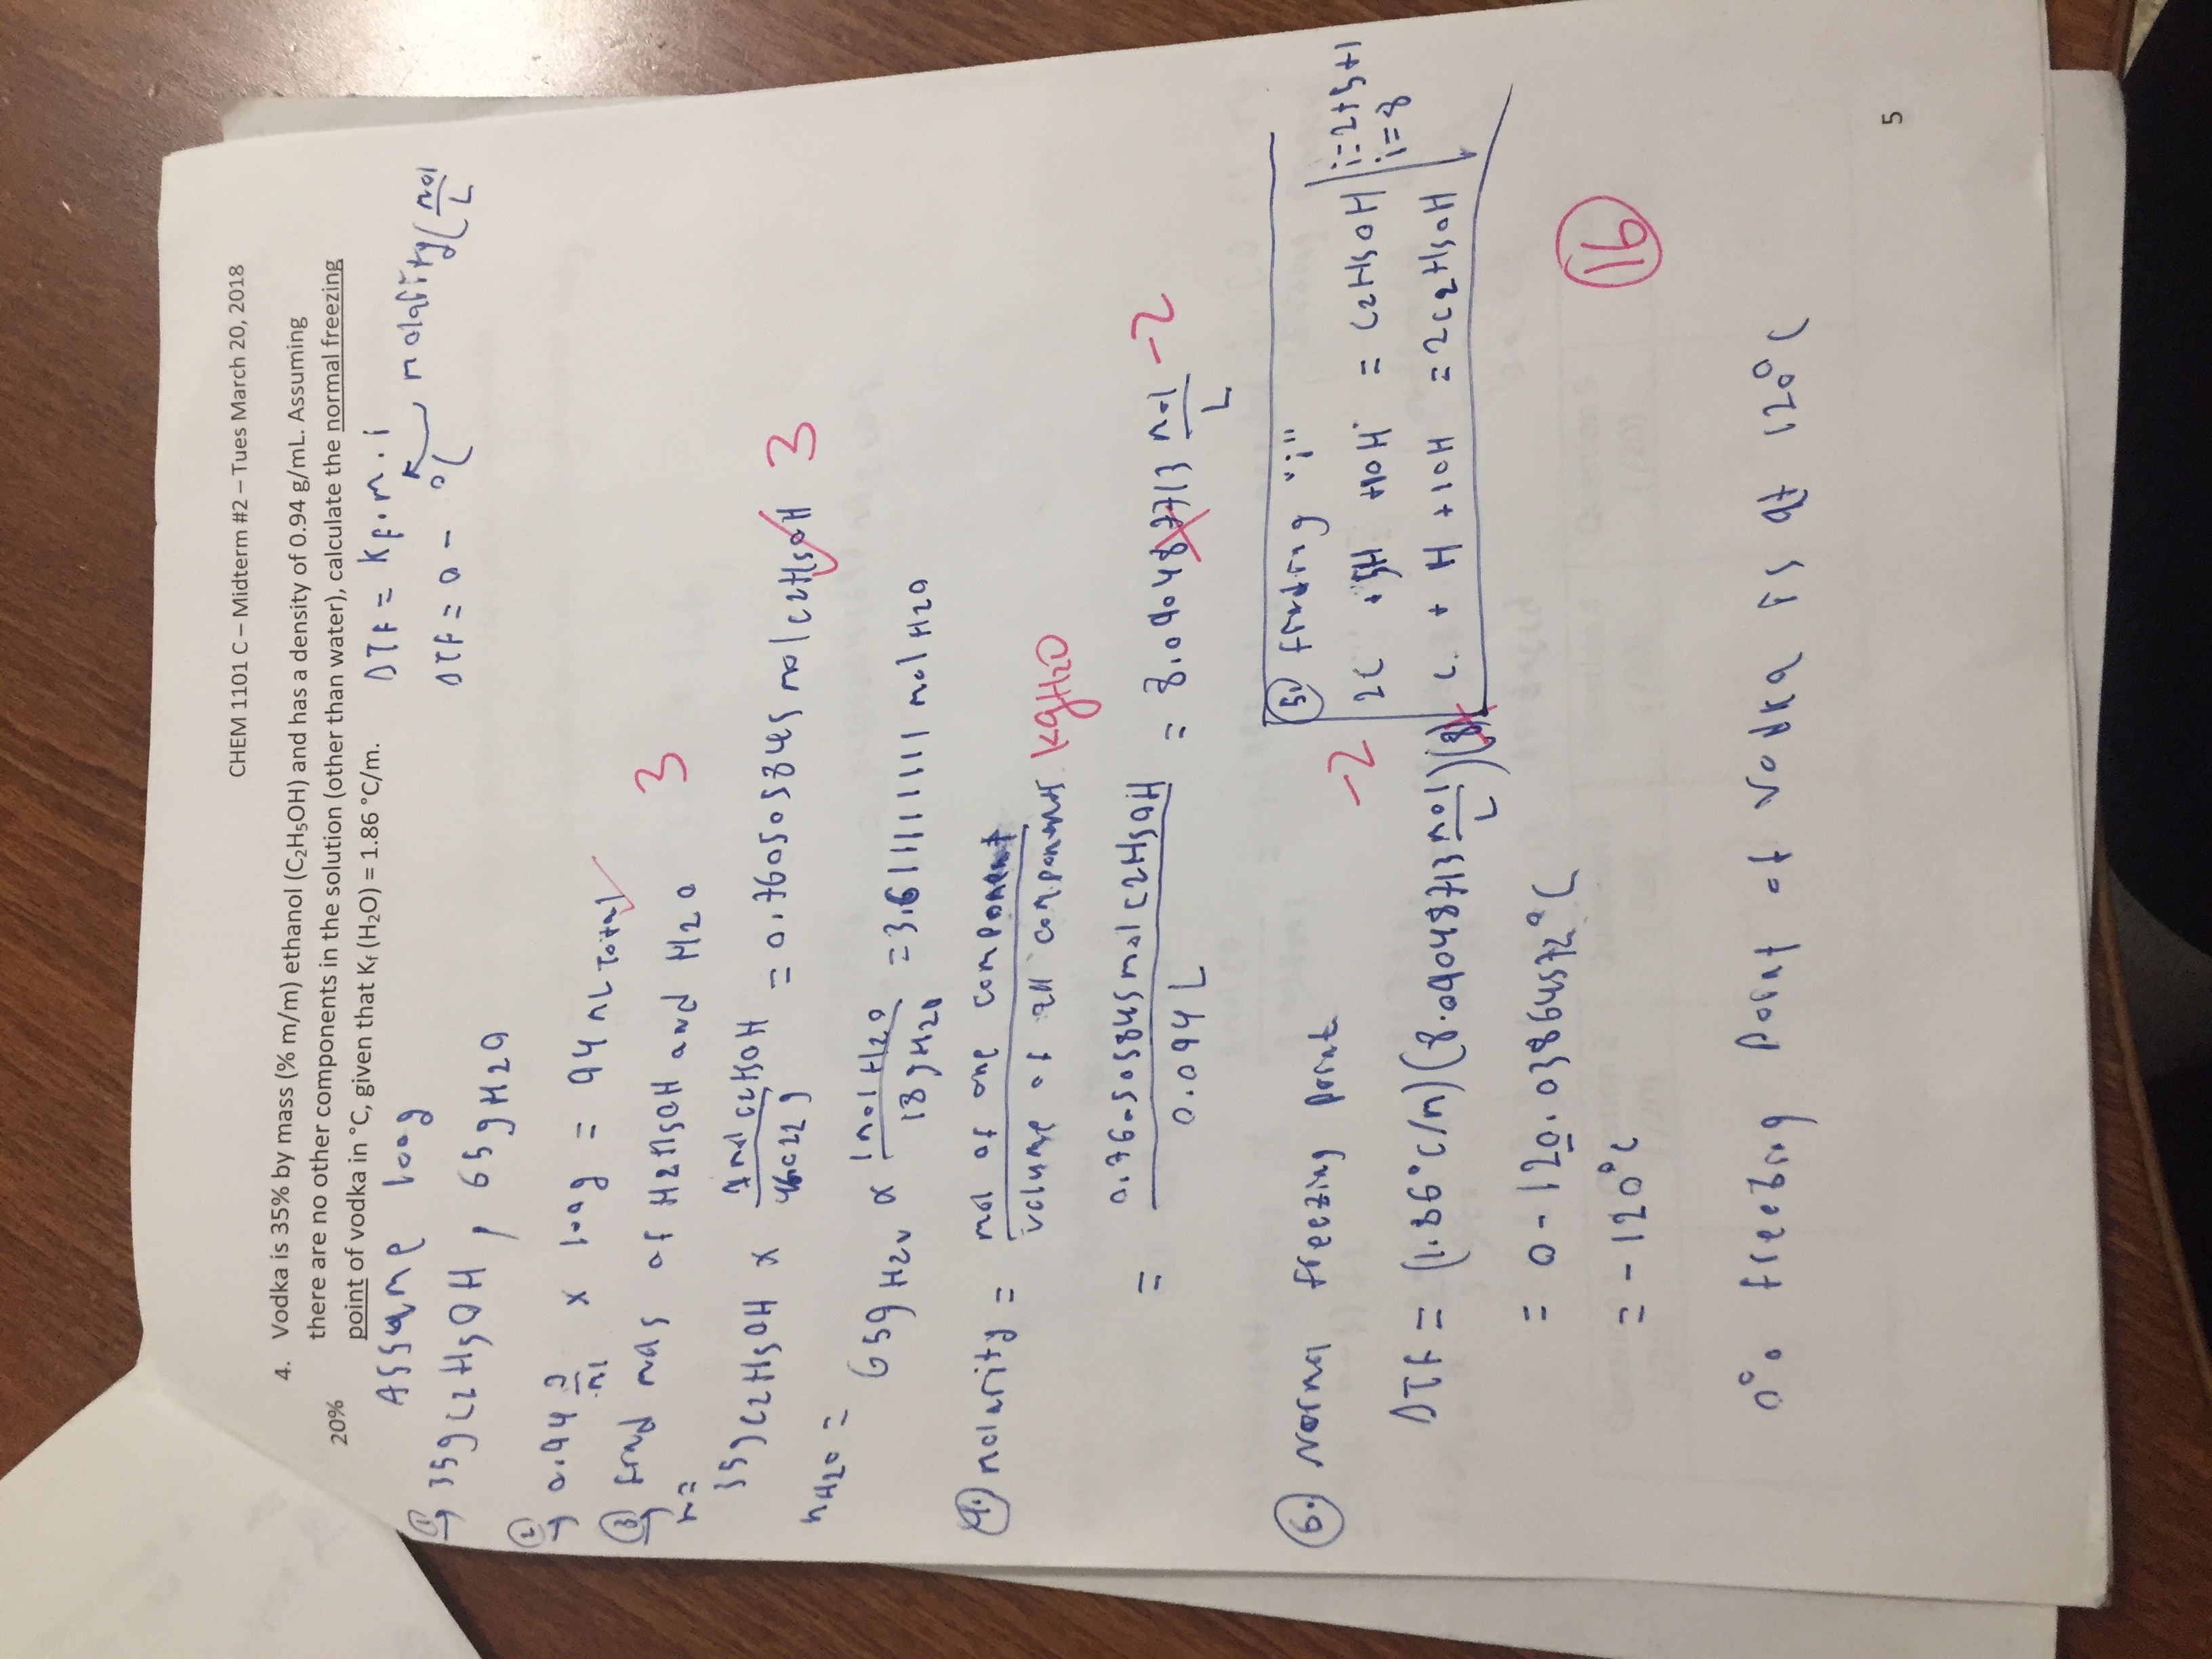 CHEM 1101 C – Midterm #2 – Tues March 20, 2018
4. Vodka is 35% by mass (% m/m) ethanol (C₂H₅OH) and has a density of 0.94 g/mL. Assuming
20% there are no other components in the solution (other than water), calculate the normal freezing
point of vodka in °C, given that Kf (H₂O) = 1.86 °C/m.
Assume 100g
DTf = Kf · m · i
1. 35g C2H5OH, 65g H2O
DTf = 0 - °C
molarity (mol/L
2. 0.94 g/ml x 100g = 94 mL Total
3
3. Find mas of H2H5OH and H2O
n=
35g C2H5OH x 1 mol C2H5OH / 46.022g = 0.7605058345 mol C2H5OH 3
nH2O = 65g H2O x 1 mol H2O / 18g H2O = 3.611111111 mol H2O
4. molarity = mol of one component / volume of all component kgH2O
= 0.7605058345 mol C2H5OH / 0.094 L = 8.090487713 mol/L -2
5. Finding "i"
2C + 5H + OH = C2H5OH i=2+5+1
C + H + 1OH = 2C2H5OH i=8
6. Normal freezing point
-2
DTf = (1.86°C/m)(8.090487713 mol/L)(8)
= 0 - 120.0386457°C
= -120°C
16
° freezing point of vodka is at 120°C
5